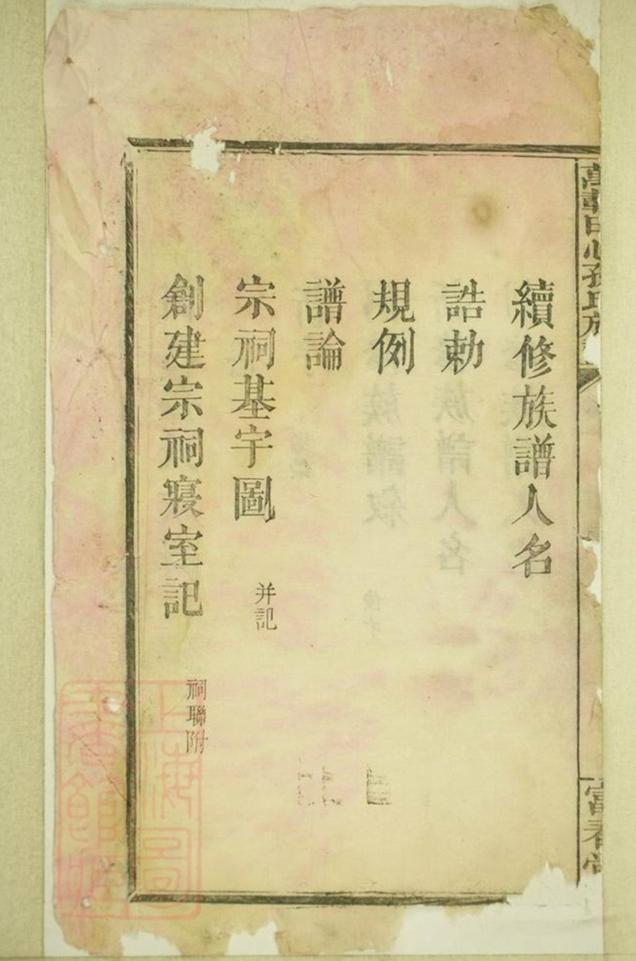 續修族譜人名
誥勅
規例
譜論
宗祠基宇圖 并記
創建宗祠寢室記 祠聯附
富春堂